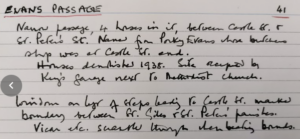 EVANS PASSAGE 41
Narrow passage, 4 houses in it, between Castle St. &
St. Peter's St. Named from Evans whose butchers
shop was at Castle St. end.
Houses demolished 1938. Site occupied by
King's Garage next to Methodist Church.
on of steps leading to Castle St. marked
boundary between St. Giles & St. Peter's parishes.
Vicar etc. through when beating bounds.